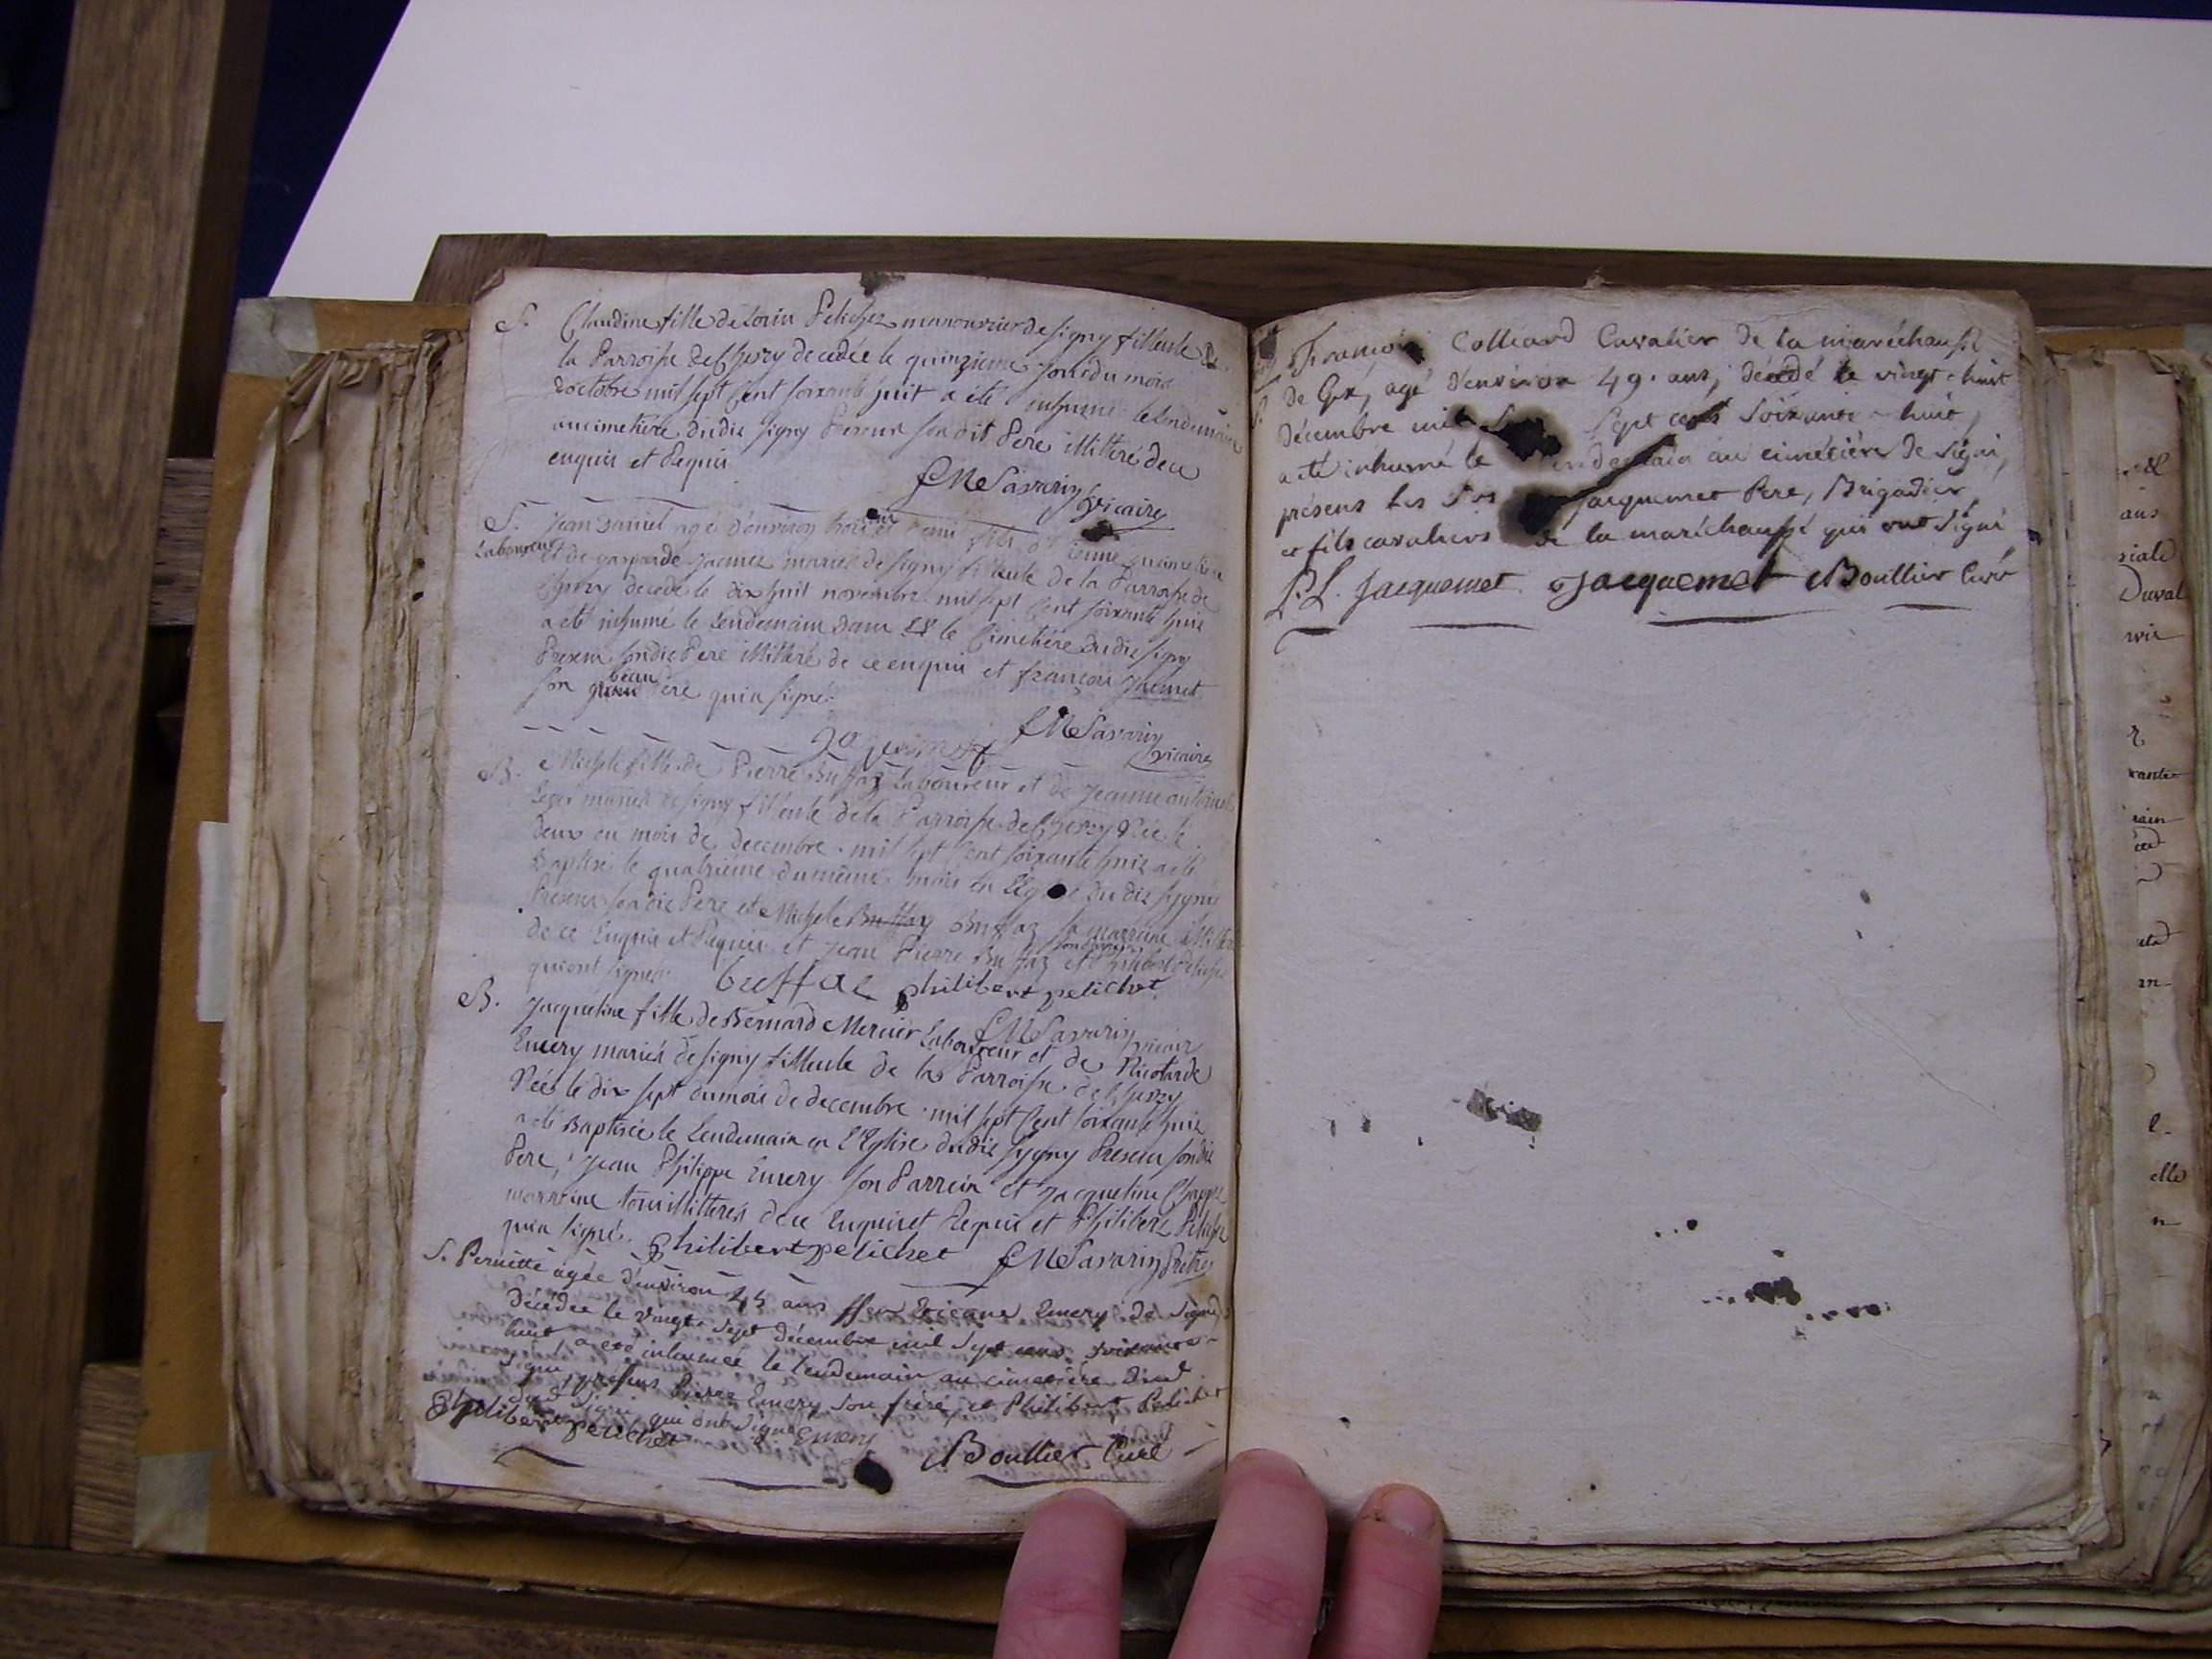 S. Claudine fille de Louis Pelichet manouvrier de signy filleule de
la Parroisse de Chessy decedée le quinzieme jour du mois
d'octobre mil sept Cent soixante huit a été inhumée le lendemain
au cimetière dudit signy Present son dit Pere illiteré de ce
enquis et Requis
f M Savarin vicaire
S. Jean Daniel agé d'environ trois et demi fils d'Etienne
Laboureur et de gasparde Jacmet mariés de signy filleule de la Parroisse de
decedé le dix huit novembre mil sept Cent soixante huit
a été inhumé le lendemain dans le Cimetière dudit signy
Present sondit Pere illiteré de ce enquis et françois Jacmet
son beau Pere qui a signé
f M Savarin
vicaire
B. Michele fille de Pierre Buffaz Laboureur et de Jeanne antoinette
Leger mariés de signy filleule de la Parroisse de Née le
deux du mois de decembre mil sept Cent soixante huit a été
Baptisée le quatrième du meme mois en L'Eglise dudit sygny
Present sondit Pere et Michele Buffaz Buffaz sa marraine
de ce Enquis et Requis et Jean Pierre Buffaz son Parrein et Philibert Pelichet
qui ont signés buffaz philibert pelichet
f M Savarin vicaire
B. Jacqueline fille de Bernard Mercier Laboureur et de Nicolarde
Emery mariés de signy filleule de la Parroisse de
Née le dix sept du mois de decembre mil sept Cent soixante huit
a été Baptisée le Lendemain en L'Eglise dudit sygny Present sondit
Pere, Jean Philippe Emery son Parrein et Jacqueline
marraine tous illiterés de ce Enquis et Requis et Philibert Pelichet
qui a signé. Philibert pelichet f M Savarin Prêtre
S. Pernette agée d'environ 45 ans Etienne Emery de Signi
décédée le vingt-sept décembre mil sept cens soixante-
huit, a été inhumée le lendemain au cimetière dudt
Signi, présens Pierre Emery son frère, et Philibert Pelichet
dud. Signi, qui ont signé
Philibert pelichet Emery Boullier Curé
S. François Colliard Cavalier de la maréchaussé
de Gex, agé d'environ 49. ans, décédé le vingt-huit
décembre mil Sept cens soixante-huit,
a été inhumé le lendemain au cimetière de Signi,
présens les Srs Jacquemet Pere, Brigadier,
et fils cavaliers de la maréchaussé qui ont signé
P. L. Jacquemet Jacquemet Boullier Curé
ans
siale
Duval
elle